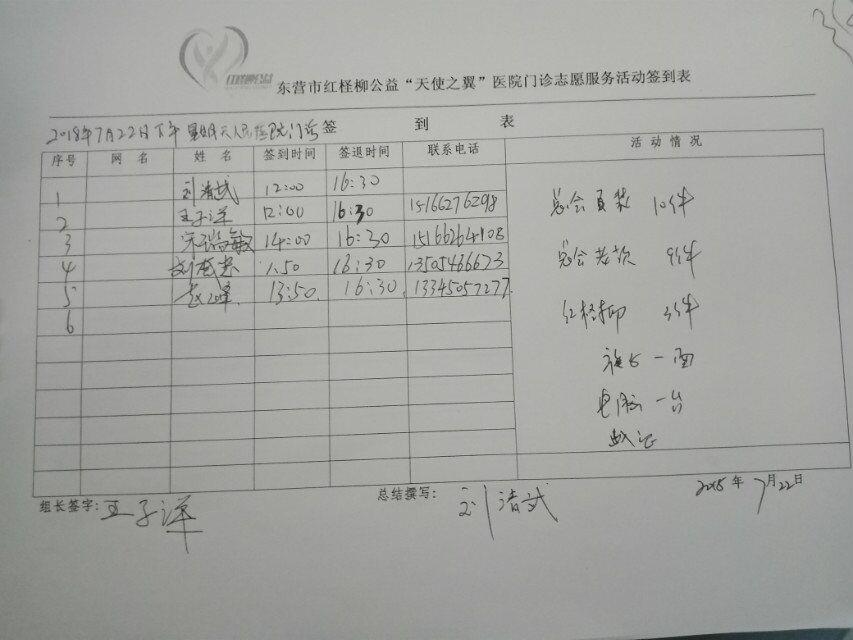 东营市红柽柳公益“天使之翼”医院门诊志愿服务活动签到表
2018年7月22日下午 人民医院门诊 签 到 表
序号 网名 姓名 签到时间 签退时间 联系电话 活动情况
1 刘清武 12:00 16:30
2 王子洋 12:00 16:30 15166276298
3 宋瑞敏 14:00 16:30 15166264108
4 1.50 16:30 13505466673
5 赵峰 13:50. 16:30. 13345057277.
6
总会 10件
总会 9件
红柽柳 3件
一面
电脑 一台
组长签字: 王子洋
总结撰写: 刘清武
2018年7月22日